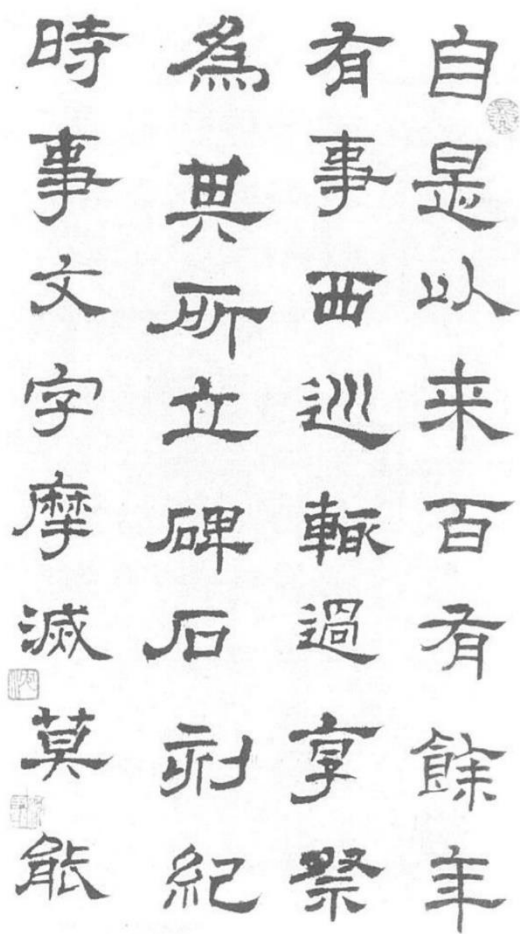 自是以来百有餘年
有事西巡輒過享祭
為其所立碑石刻紀
時事文字摩滅莫能